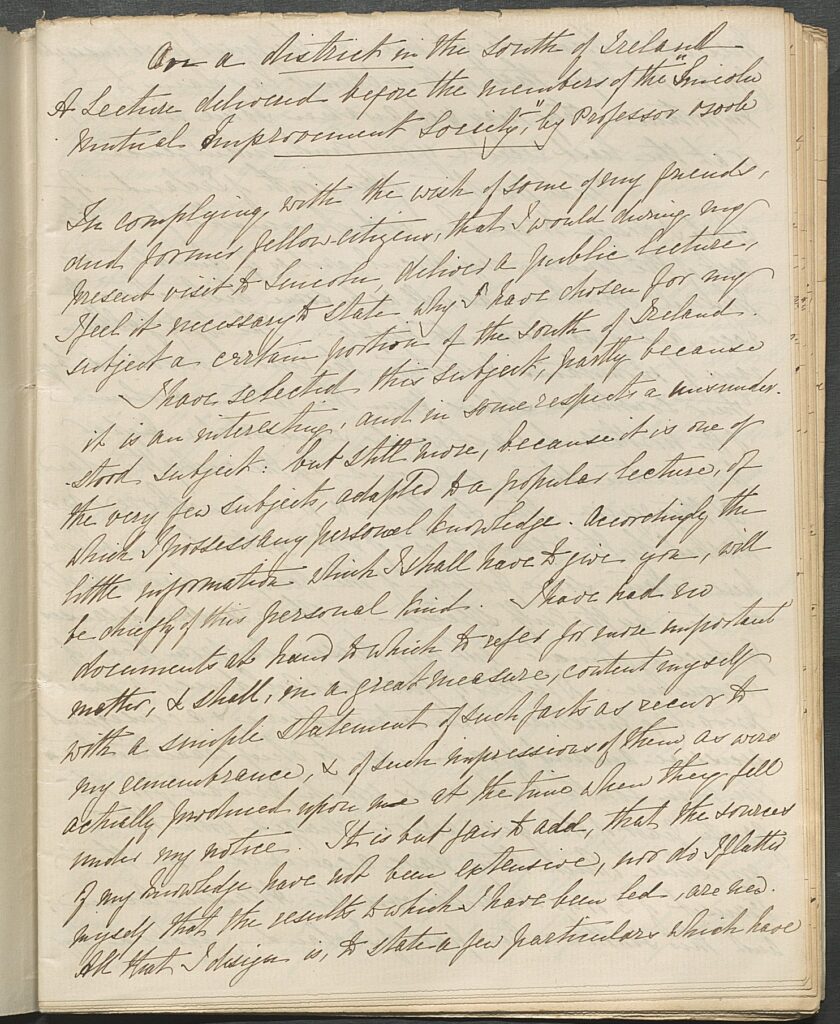 On a district in the South of Ireland
A Lecture delivered before the members of the "Lincoln
Mutual Improvement Society," by Professor Boole
In complying, with the wish of some of my friends,
and former fellow-citizens, that I would during my
present visit to Lincoln, deliver a public lecture,
I feel it necessary to state why I have chosen for my
subject a certain portion of the South of Ireland.
I have selected this subject, partly because
it is an interesting, and in some respects a misunder-
-stood subject: but still more, because it is one of
the very few subjects, adapted to a popular lecture, of
which I possess any personal knowledge. Accordingly the
little information which I shall have to give you, will
be chiefly of this personal kind. I have had no
documents at hand to which to refer for more important
matter, & shall, in a great measure, content myself
with a simple statement of such facts as recur to
my remembrance, & of such impressions of them, as were
actually produced upon me at the time when they fell
under my notice. It is but fair to add, that the sources
of my knowledge have not been extensive, nor do I flatter
myself that the results to which I have been led, are new.
All that I design is, to state a few particulars which have